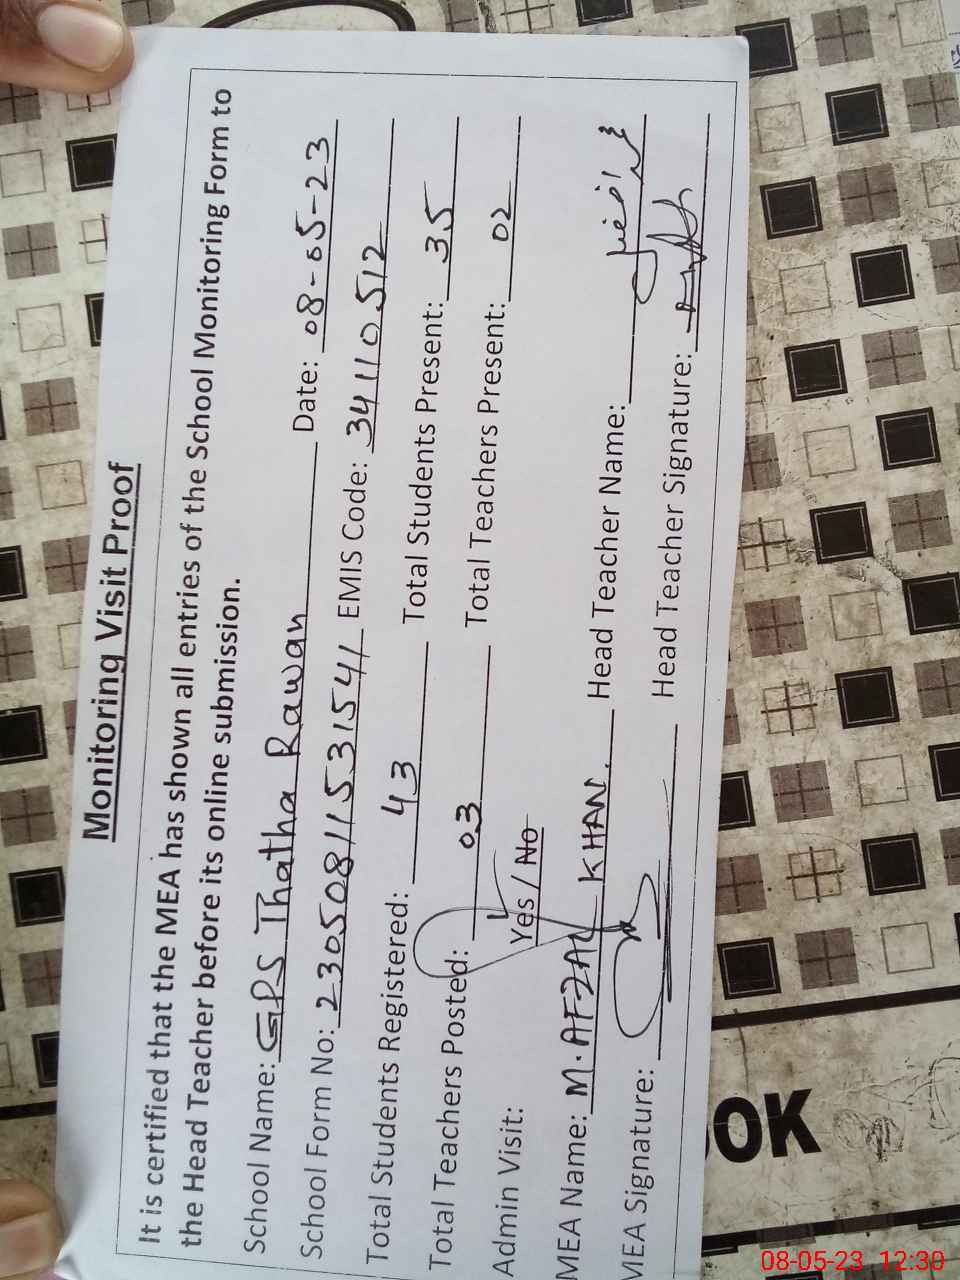 Monitoring Visit Proof
It is certified that the MEA has shown all entries of the School Monitoring Form to
the Head Teacher before its online submission.
School Name: GPS Thatha Rawan Date: 08-05-23
School Form No: 230508115531541 EMIS Code: 34110512
Total Students Registered: 43 Total Students Present: 35
Total Teachers Posted: 03 Total Teachers Present: 02
Admin Visit: Yes / No
MEA Name: M. AFZAL KHAN. Head Teacher Name:
MEA Signature: Head Teacher Signature:
OK
08-05-23 12:30